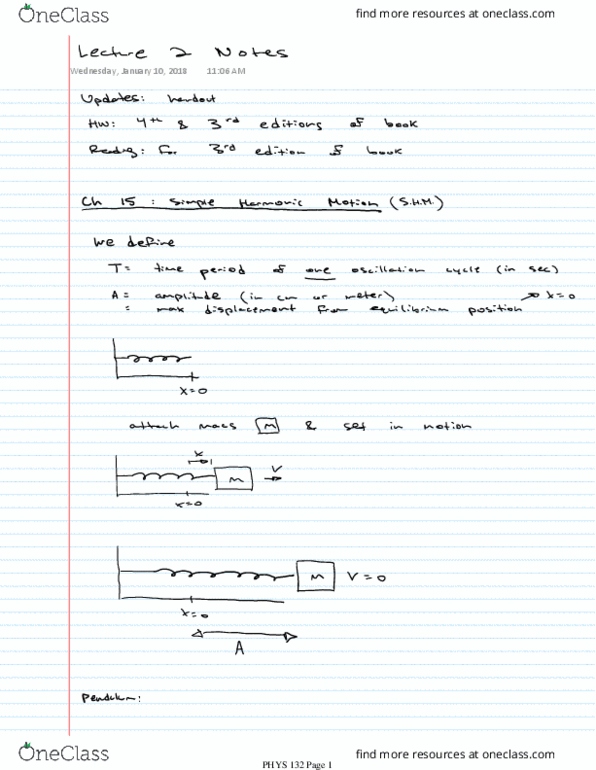 OneClass
find more resources at oneclass.com
Lecture 2 Notes
Wednesday, January 10, 2018 11:06 AM
Updates: handout
HW: 4th & 3rd editions of book
Reading: For 3rd edition of book
Ch 15 : Simple Harmonic Motion (S.H.M.)
We define
T = time period of one oscillation cycle (in sec)
A = amplitude (in cm or meter)
→ x=0
= max displacement from equilibrium position
x=0
attach mass M & set in motion
x
M
v
x=0
M
V=0
x=0
A
Pendulum:
OneClass
find more resources at oneclass.com
PHYS 132 Page 1